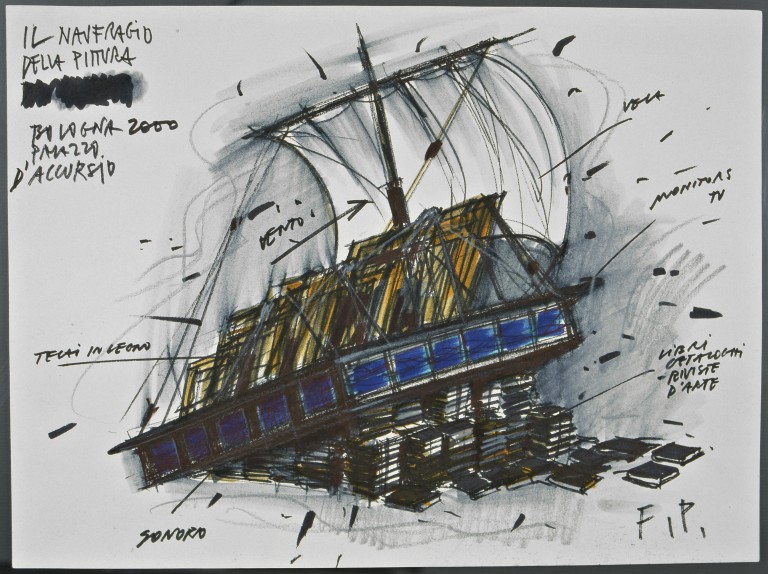 IL NAUFRAGIO
DELLA PITTURA
BOLOGNA 2000
PALAZZO
D'ACCURSIO
VELA
MONITORS
TV
VENTO
TELAI IN LEGNO
LIBRI
CATALOGHI
RIVISTE
D'ARTE
SONORO
F.P.